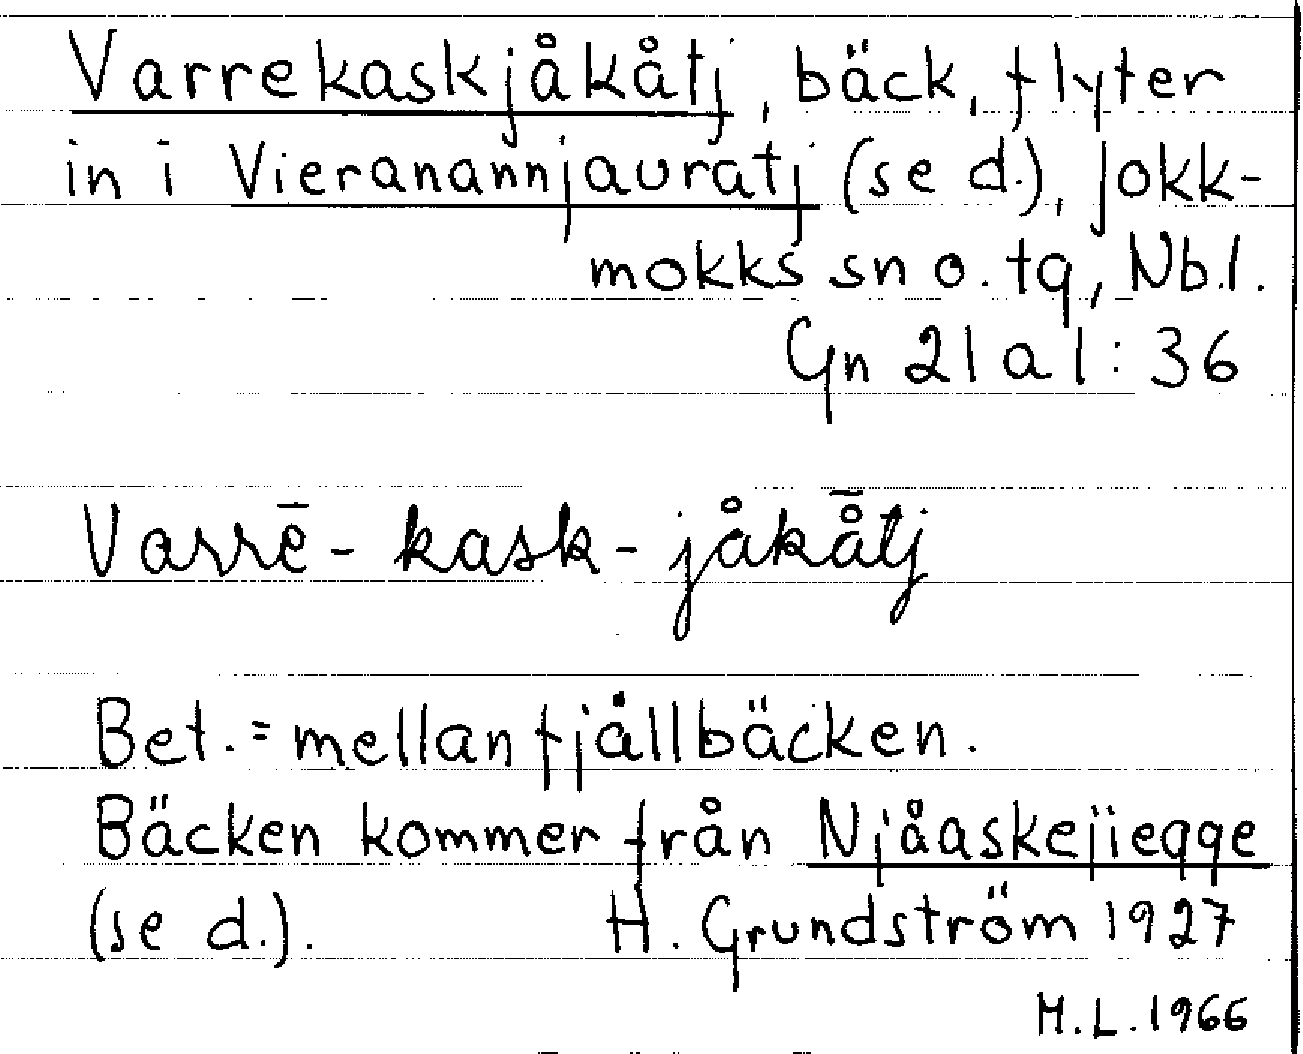 Varrekaskjåkåtj, bäck, flyter
in i Vieranannjauratj (se d.), Jokk-
mokks sn o. tg, Nb.l.
Gn 21 a 1:36
Varrē-kask-jåkå̄tj
Bet. = mellanfjällbäcken.
Bäcken kommer från Njåaskejiegge
(se d.). H. Grundström 1927
M.L. 1966